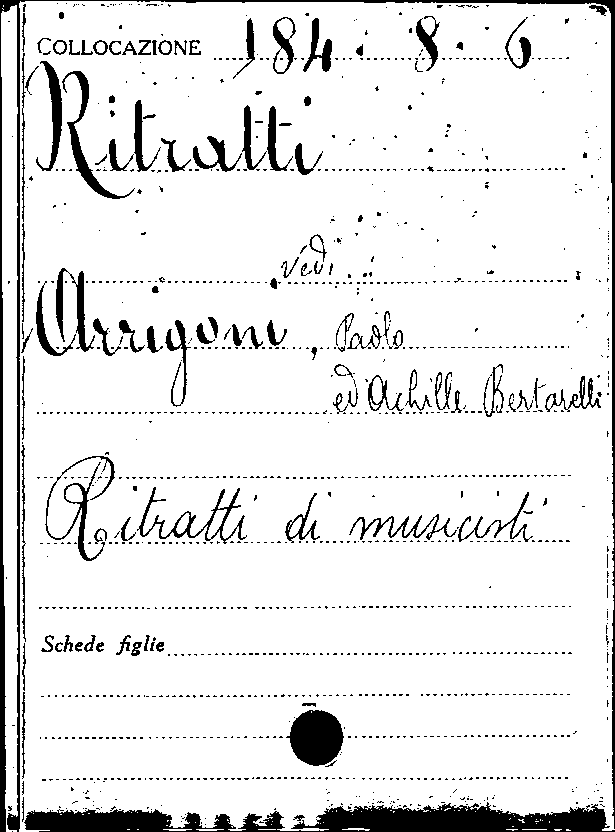 COLLOCAZIONE 184. 8. 6
Ritratti
Vedi
Arrigoni, Paolo
ed Achille Bertarelli
Ritratti di musicisti
Schede figlie